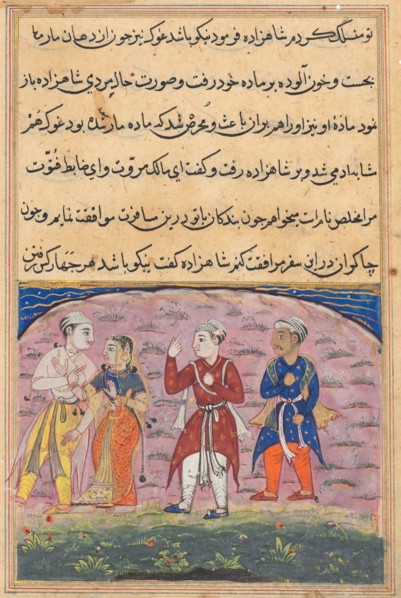 تو منسلک کردم شاهزاده فرمود نیکو باشد غوک نیز چون از دهان مار
بجست و خون آلوده بر ماده خود رفت و صورت حال مردی شاهزاده باز
نمود مادهٔ او نیز او را هم بر باعث و محرض شد که ماده مار شده بود غوک هم
شابه ادمی شد و بر شاهزاده رفت و گفت ای مالک مروت و ای ضابط فتوت
مرا مخلص نام است میخواهم چون بندکان با تو درین مسافرت موافقت نمایم و چون
چاکران درین سفر مرافقت کنم شاهزاده کفت نیکو باشد هر چهار